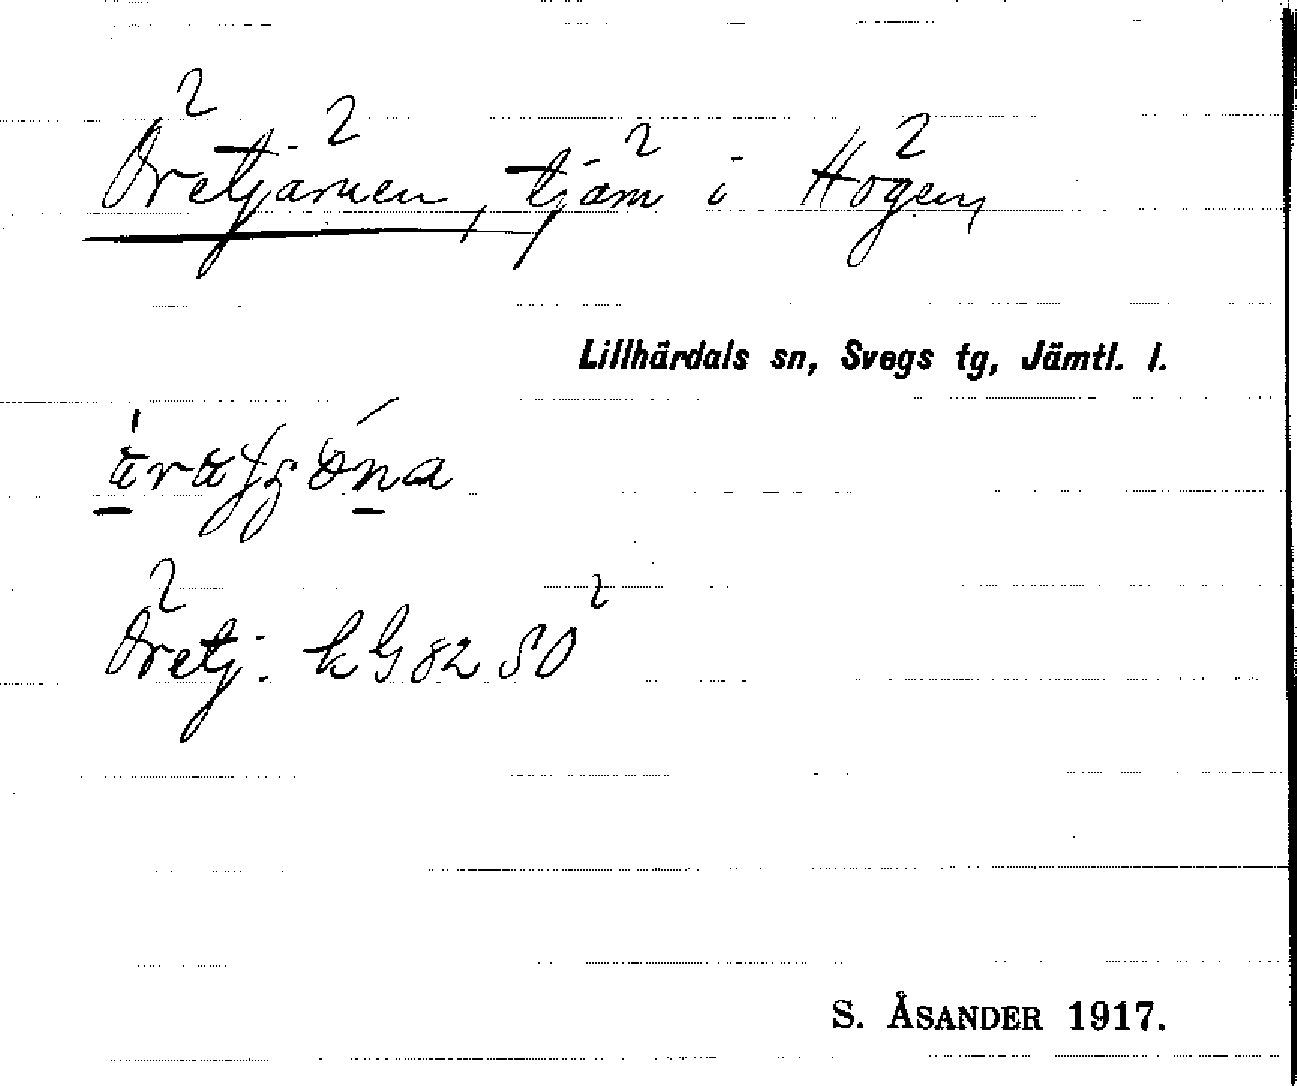 Öretjärnen, tjärn i Högen,
Lillhärdals sn, Svegs tg, Jämtl. l.
Öretj. kG82 SO
S. ÅSANDER 1917.